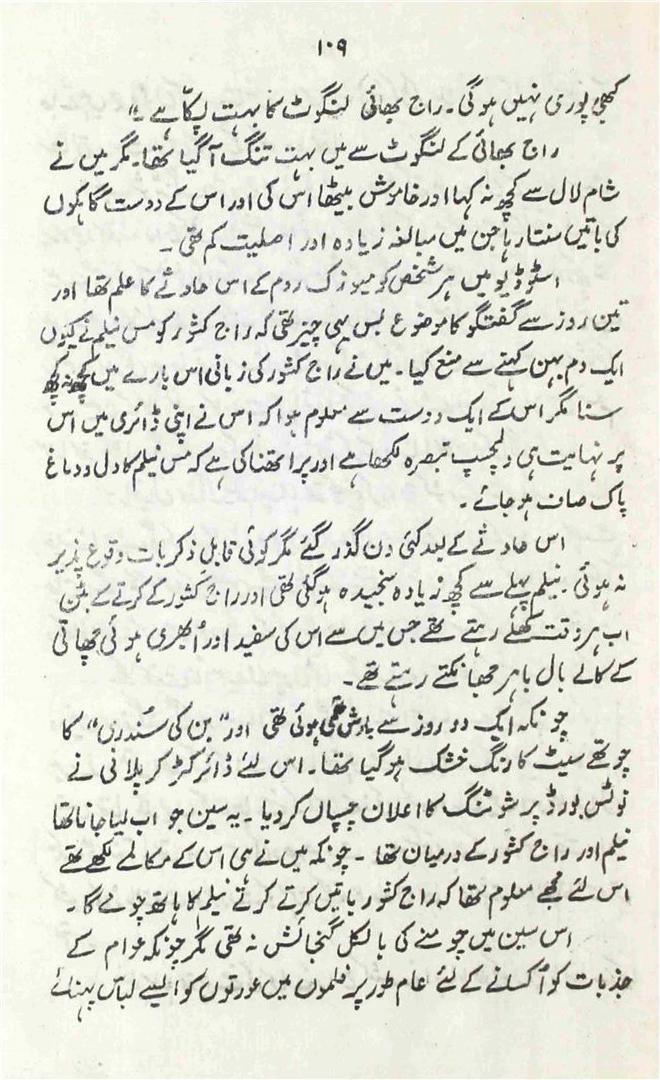 ۱۰۹
کبھی پوری نہیں ہوگی۔ راج بھائی لنگوٹ کا بہت پکّا ہے۔"
راج بھائی کے لنگوٹ سے میں بہت تنگ آ گیا تھا۔ مگر میں نے
شام لال سے کچھ نہ کہا اور خاموش بیٹھا اس کی اور اس کے دوست گاہکوں
کی باتیں سنتا رہا جن میں مبالغہ زیادہ اور اصلیت کم تھی۔
اسٹوڈیو میں ہر شخص کو میوزک روم کے اس حادثے کا علم تھا اور
تین روز سے گفتگو کا موضوع بس یہی چیز تھی کہ راج کشور کو مس نیلم نے کیوں
ایک دم بہن کہنے سے منع کیا۔ میں نے راج کشور کی زبانی اس بارے میں کچھ نہ کچھ
سنا مگر اس کے ایک دوست سے معلوم ہوا کہ اس نے اپنی ڈائری میں اس
پر نہایت ہی دلچسپ تبصرہ لکھا ہے اور پرارتھنا کی ہے کہ مس نیلم کا دل و دماغ
پاک صاف ہو جائے۔
اس حادثے کے بعد کئی دن گذر گئے مگر کوئی قابل ذکر بات وقوع پذیر
نہ ہوئی۔ نیلم پہلے سے کچھ زیادہ سنجیدہ ہو گئی تھی اور راج کشور کے کرتے کے بٹن
اب ہر وقت کھلے رہتے تھے جس میں سے اس کی سفید اور اُبھری ہوئی چھاتی
کے کالے بال باہر جھانکتے رہتے تھے۔
چونکہ ایک دو روز سے بارش تھمی ہوئی تھی اور "بن کی سُندری" کا
چوتھے سیٹ کا رنگ خشک ہو گیا تھا۔ اس لئے ڈائرکٹر کرپلانی نے
نوٹس بورڈ پر شوٹنگ کا اعلان چسپاں کر دیا۔ یہ سین جو اب لیا جانا تھا
نیلم اور راج کشور کے درمیان تھا۔ چونکہ میں نے ہی اس کے مکالمے لکھے تھے
اس لئے مجھے معلوم تھا کہ راج کشور باتیں کرتے کرتے نیلم کا ہاتھ چومے گا۔
اس سین میں چومنے کی بالکل گنجائش نہ تھی مگر چونکہ عوام کے
جذبات کو اُکسانے کے لئے عام طور پر فلموں میں عورتوں کو ایسے لباس پہنائے